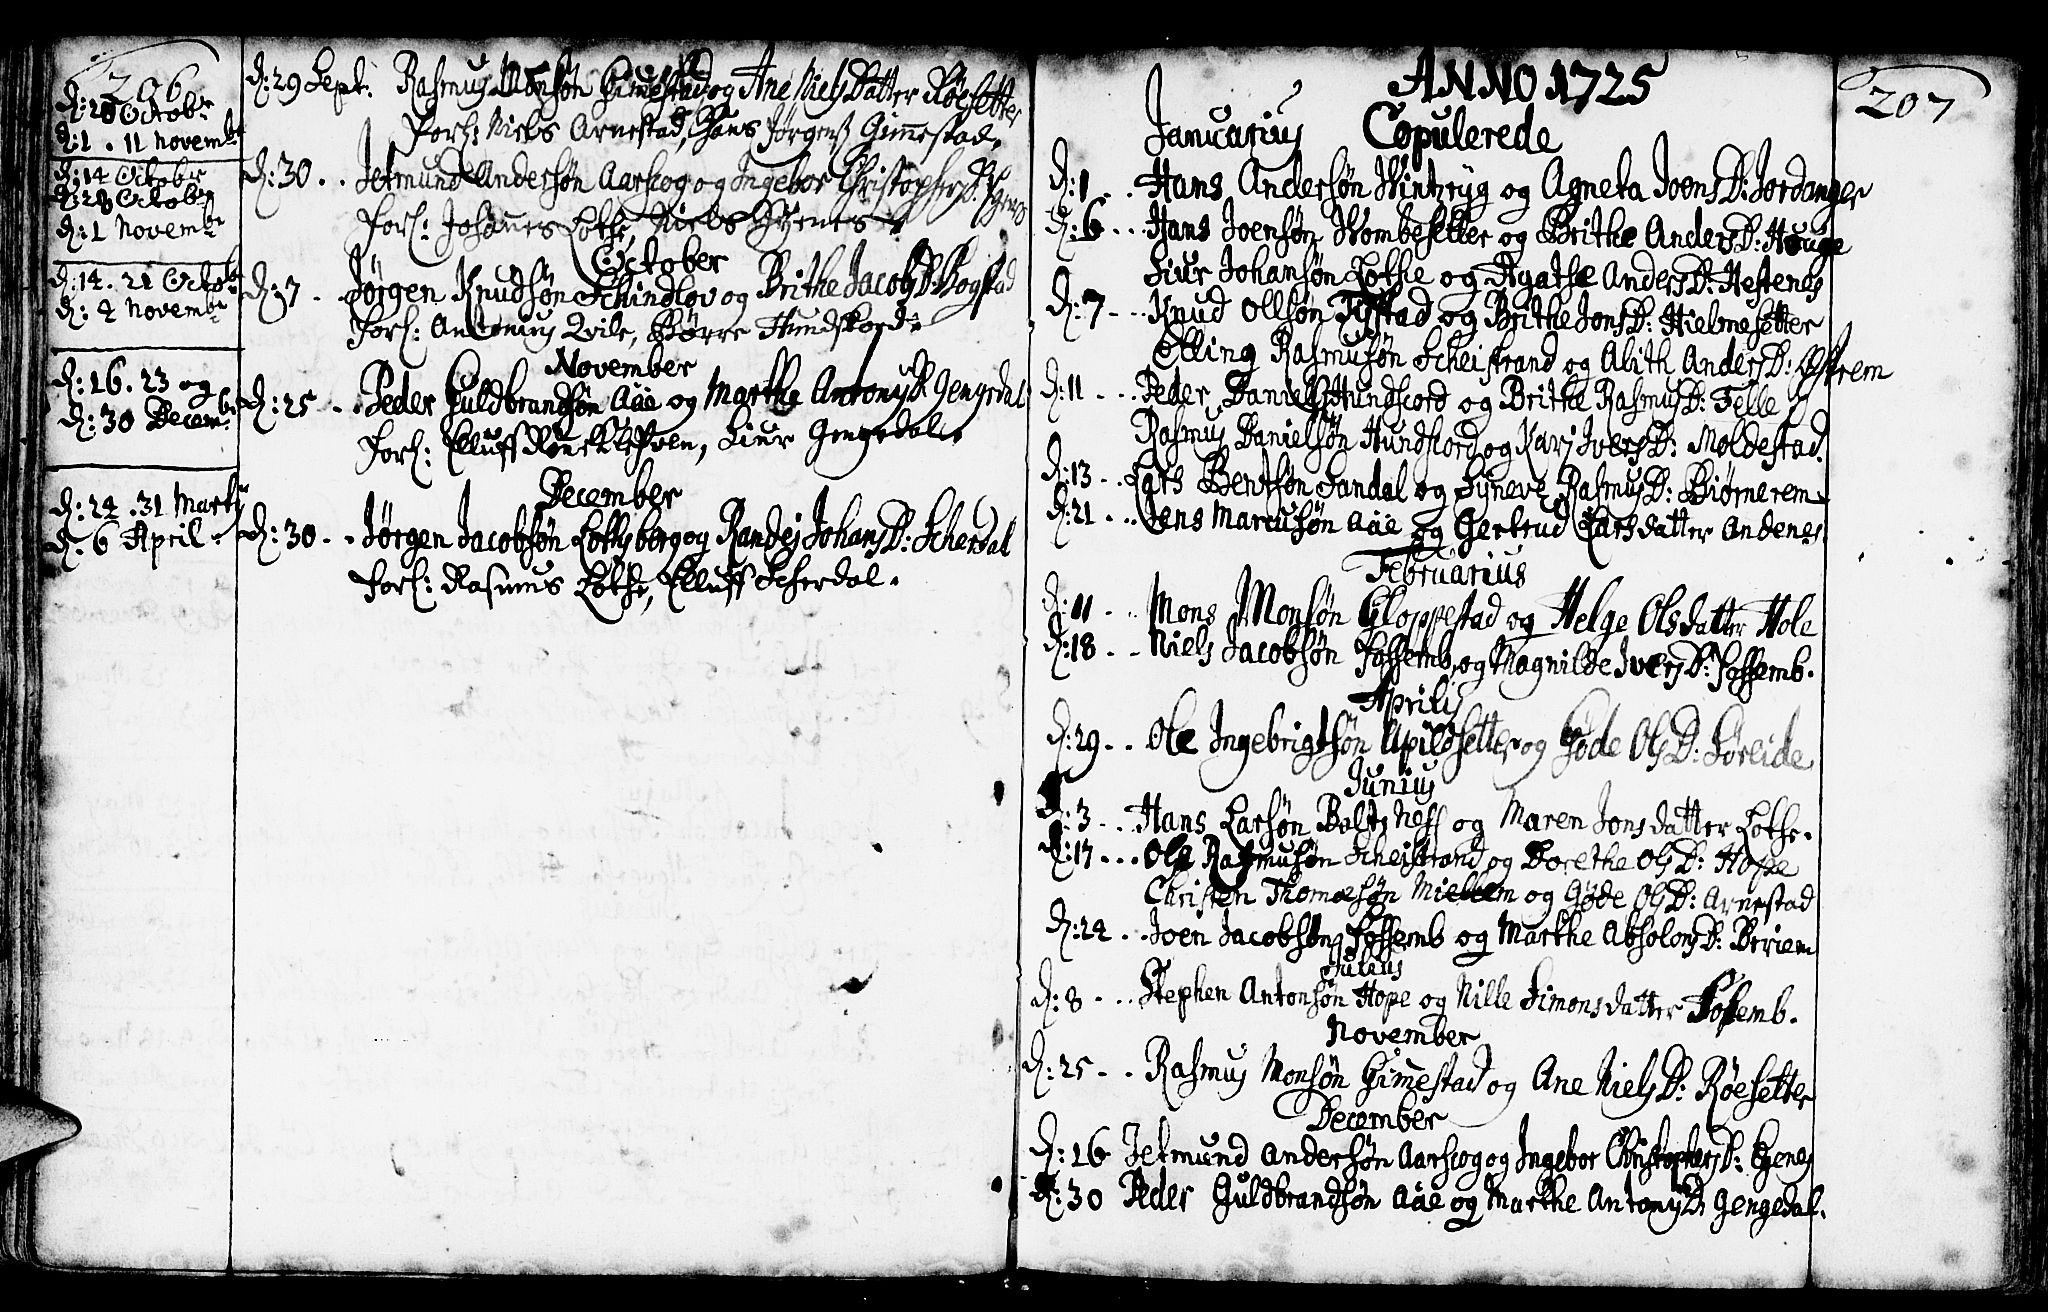 206
d: 28 Octobr
d: 1. 11 Novembr
d: 14 Octobr
d: 28 Octobr
d: 1 Novembr
d: 14. 21 Octobr
d: 4 Novembr
d: 16. 23 og
d: 30 Decembr
d: 24. 31 Marty
d. 6 April.
d: 29 Sept: Rasmus Monsøn Gimestad og Ane Niels Datter Røesetter
Forl: Niels Arnestad, Hans Jørgens Gimmestad.
d: 30. . Jetmund Andersøn Aarscog og Ingebor Christophers D: Egenes
Forl: Johannes Lothe, Niels Hyenes.
October
d: 7. . Jørgen Knudsøn Schindlov og Brithe Jacobs D: Bogstad
Forl: Antonius Qvile, Børre Hundskord.
November
d: 25. . Peder Guldbrandsøn Aae og Marthe Antonys D: Gengedal
Forl: Elluff, Siur Gengedal.
December
d: 30. . Jørgen Jacobsøn Lothsberg og Randej Johans D: Scherdal
Forl: Rasmus Lothe, Elluff Scherdal.
207
ANNO 1725
Januarius Copulerede
d: 1. . Hans Andersøn Wintryg og Agneta Joens D: Jordanger
d: 6. . . Hans Joensøn Wombesetter og Brithe Anders D: Houge
Siur Johansøn Lothe og Agathe Anders D: Hestenes
d: 7. . . Knud Ollsøn Tystad og Brithe Jons D: Hielmesetter
Elling Rasmusøn Scheistrand og Alith Anders D: Østrem
d: 11. . . Peder Daniels Hundscord og Brithe Rasmus D: Felle
Rasmus Danielsøn Hundscord og Karj Ivers D: Moldestad.
d: 13. . Lars Bentsøn Sandal og Syneve Rasmus D: Biørnerem
d: 21. . . Jens Marcusøn Aae og Gertrud Larsdatter Andenes.
Februarius
d: 11. . Mons Monsøn Gloppestad og Helge Olsdatter Hole
d: 18. . Niels Jacobsøn Fossemb. og Magnilde Ivers D: Fossemb.
Aprilis
d: 29. . Ole Ingebrigtsøn Apildsetter og Gøde Ols D: Søreide
Junius
d: 3. . . Hans Larsøn Bolts Ness og Maren Jonsdatter Lothe.
d: 17. . . Ole Rasmusøn Scheistrand og Dorethe Ols D: Hope
Christen Thomæsøn Miellem og Gøde Ols D: Arnestad
d: 24. . . Joen Jacobsøn Fossemb og Marthe Absolons D: Briem
Julius
d: 8. . . Stephen Antonsøn Hope og Nille Simonsdatter Fossemb.
November
d: 25. . . Rasmus Monsøn Gimestad og Ane Niels D: Røesetter
December
d: 16 Jetmund Andersøn Aarscog og Ingebor Christophers D: Egenes
d: 30 Peder Guldbrandsøn Aae og Marthe Antonys D: Gengedal.